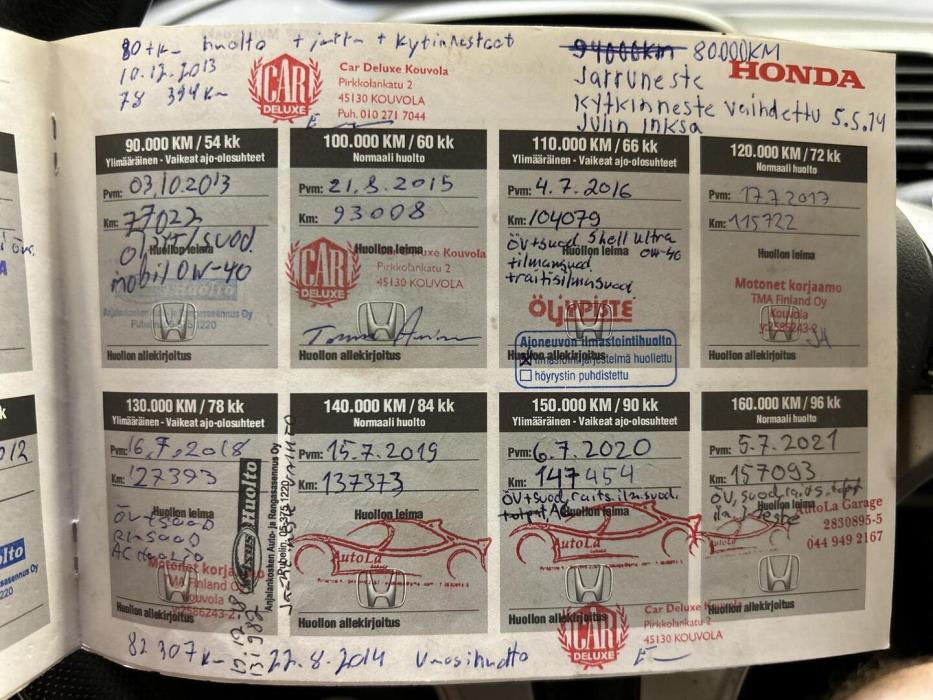 80tkm huolto + jarru + kytkinnesteet
10.12.2013
78 394km
CAR DELUXE
Car Deluxe Kouvola
Pirkkolankatu 2
45130 KOUVOLA
Puh. 010 271 7044
94000km 80.000KM
HONDA
Jarruneste
Kytkinneste vaihdettu 5.5.14
90.000 KM / 54 kk
Ylimääräinen - Vaikeat ajo-olosuhteet
Pvm: 03.10.2013
Km: 77022
Huollon leima
mobil 0W-40
Huollon allekirjoitus
100.000 KM / 60 kk
Normaali huolto
Pvm: 21.8.2015
Km: 93008
Huollon leima
CAR DELUXE
Car Deluxe Kouvola
Pirkkolankatu 2
45130 KOUVOLA
Huollon allekirjoitus
110.000 KM / 66 kk
Ylimääräinen - Vaikeat ajo-olosuhteet
Pvm: 4.7.2016
Km: 104079
öv+suod. Shell ultra
Huollon leima 0W-40
ilmansuod.
raitisilmasuod.
ÖLJYPISTE
Ajoneuvon ilmastointihuolto
Huollon allekirjoitus
ilmastointijärjestelmä huollettu
höyrystin puhdistettu
120.000 KM / 72 kk
Normaali huolto
Pvm: 17.7.2017
Km: 115722
Huollon leima
Motonet korjaamo
TMA Finland Oy
Kouvola
y-2586243-2
Huollon allekirjoitus
130.000 KM / 78 kk
Ylimääräinen - Vaikeat ajo-olosuhteet
Pvm: 16.7.2018
Km: 127393
Huollon leima
öv+suod
AC huolto
Motonet korjaamo
TMA Finland Oy
Kouvola
y-2586243-2
Huollon allekirjoitus
Huolto
Anjalankosken Auto- ja Rengasasennus Oy
140.000 KM / 84 kk
Normaali huolto
Pvm: 15.7.2019
Km: 137373
Huollon leima
AutoLa
Huollon allekirjoitus
150.000 KM / 90 kk
Ylimääräinen - Vaikeat ajo-olosuhteet
Pvm: 6.7.2020
Km: 147454
öv+suod, raitis.ilm.suod.
Huollon leima
AutoLa
Huollon allekirjoitus
160.000 KM / 96 kk
Normaali huolto
Pvm: 5.7.2021
Km: 157093
Huollon leima
AutoLa Garage
2830895-5
044 949 2167
Huollon allekirjoitus
CAR DELUXE
Car Deluxe Kouvola
Pirkkolankatu 2
45130 KOUVOLA
82 307km 22.8.2014 Vuosihuolto